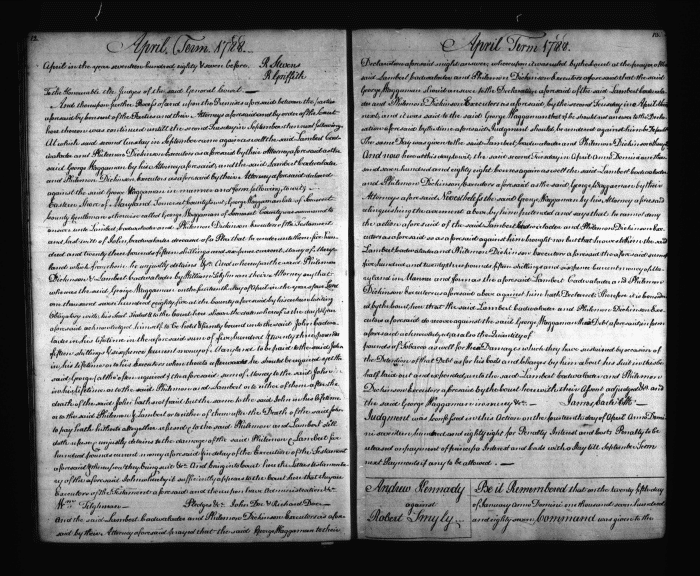 12
April Term 1788
April in the year seventeen hundred eighty & seven before R Stevens
R Griffith
To the Honourable the Judges of the said General Court
And thereupon further Process of and upon the Premises aforesaid between the parties
aforesaid by consent of the Parties and their Attorneys aforesaid and by order of the Court
here thereon was continued until the second Tuesday in September then next following
At which said second Tuesday in September came again as well the said Lambert Cad-
walader and Philemon Dickinson Executors as aforesaid by their Attorney aforesaid as the
said George Waggaman by his Attorney aforesaid and the said Lambert Cadwalader
and Philemon Dickinson Executors as aforesaid by their Attorney aforesaid declared
against the said George Waggaman in manner and form following to wit
Eastern Shore of Maryland Somerset County to wit George Waggaman late of Somerset
County Gentleman otherwise called George Waggaman of Somerset County was summoned to
answer unto Lambert Cadwalader and Philemon Dickinson Executors of the Testament
and last will of John Cadwalader deceased of a Plea that he render unto them five hun-
dred and twenty three pounds fifteen shillings and six pence current money of Mary-
land which from them he unjustly detains &c And whereupon the said Philemon
Dickinson & Lambert Cadwalader by William Tilghman their Attorney say that
whereas the said George Waggaman on the fourteenth day of April in the year of our Lord
one thousand seven hundred eighty five at the County aforesaid by his certain writing
Obligatory with his Seal Sealed & to the Court here shewn the date whereof is the day & year
aforesaid acknowledged himself to be held & firmly bound unto the said John Cadwa-
lader in his lifetime in the aforesaid sum of five hundred & twenty three pounds
fifteen shillings & six pence current money of Maryland to be paid to the said John
in his lifetime or to his Executors when thereto afterwards he should be required yet the
said George (altho' often required) the aforesaid sum of Money to the said John in
his lifetime or to the said Philemon and Lambert or to either of them after the
death of the said John hath not paid but the same to the said John in his lifetime
or to the said Philemon & Lambert or to either of them after the Death of the said John
to pay hath hitherto altogether refused & to the said Philemon and Lambert still
doth refuse & unjustly detains to the damage of the said Philemon & Lambert five
hundred pounds current money aforesaid
aforesaid & therefore they bring suit &c And bring into Court here the Letters testamenta-
ry of the aforesaid John whereby it sufficiently appears to the Court here that they are
Executors of the Testament aforesaid and thereupon have Administration &c
Wm Tilghman Pledges &c John Doe & Richard Roe
And the said Lambert Cadwalader and Philemon Dickinson Executors as afore-
said by their Attorney aforesaid prayed that the said George Waggaman to their
April Term 1788
Declaration aforesaid might answer, whereupon it was said by the Court at the prayer of the
said Lambert Cadwalader and Philemon Dickinson Executors aforesaid that the said
George Waggaman should answer to the Declaration aforesaid of the said Lambert Cadwala-
der and Philemon Dickinson Executors as aforesaid by the second Tuesday in April then
next and it was said to the said George Waggaman that if he should not answer to the Decla-
ration aforesaid by the time aforesaid Judgment should be rendered against him by Default
The same Day was given to the said Lambert Cadwalader and Philemon Dickinson there &c
And now at this day to wit the said second Tuesday in April Anno Domini one thou-
sand seven hundred and eighty eight comes again as well the said Lambert Cadwalader
and Philemon Dickinson Executors as aforesaid as the said George Waggaman by their
Attorneys aforesaid Nevertheless the said George Waggaman by his Attorney aforesaid
relinquishing the averment above by him pretended and says that he cannot deny
the action aforesaid of the said Lambert Cadwalader and Philemon Dickinson Exe-
cutors as aforesaid so as aforesaid against him brought nor but that he owes to them the said
Lambert Cadwalader and Philemon Dickinson Executors aforesaid the aforesaid sum of
five hundred and twenty three pounds fifteen shillings and six pence current money of Ma-
ryland in Manner and form as the aforesaid Lambert Cadwalader and Philemon
Dickinson Executors as aforesaid above against him hath Declared Therefore it is consider-
ed by the Court here that the said Lambert Cadwalader and Philemon Dickinson Exe-
cutors aforesaid do recover against the said George Waggaman their Debt aforesaid in form
aforesaid acknowledged as also the Quantity of
pounds of Tobacco as well for their Damages which they have sustained by reason of
the Detention of that Debt as for his costs and charges by them about his suit in this be-
half laid out and expended unto the said Lambert Cadwalader and Philemon
Dickinson Executors aforesaid by the Court here with their Assent adjudged &c and
the said George Waggaman in mercy &c James Earle Clk
Judgment was confessed in this Action on the fourteenth day of April Anno Domi-
ni seventeen hundred and eighty eight for Penalty Interest and Costs Penalty to be
released on payment of principal Interest and Costs with a Stay till September Term
next Payments if any to be allowed
Andrew Kennedy
against
Robert Smyly
Be it Remembered that on the twenty fifth day
of January Anno Domini one thousand seven hundred
and eighty seven Command was given to the